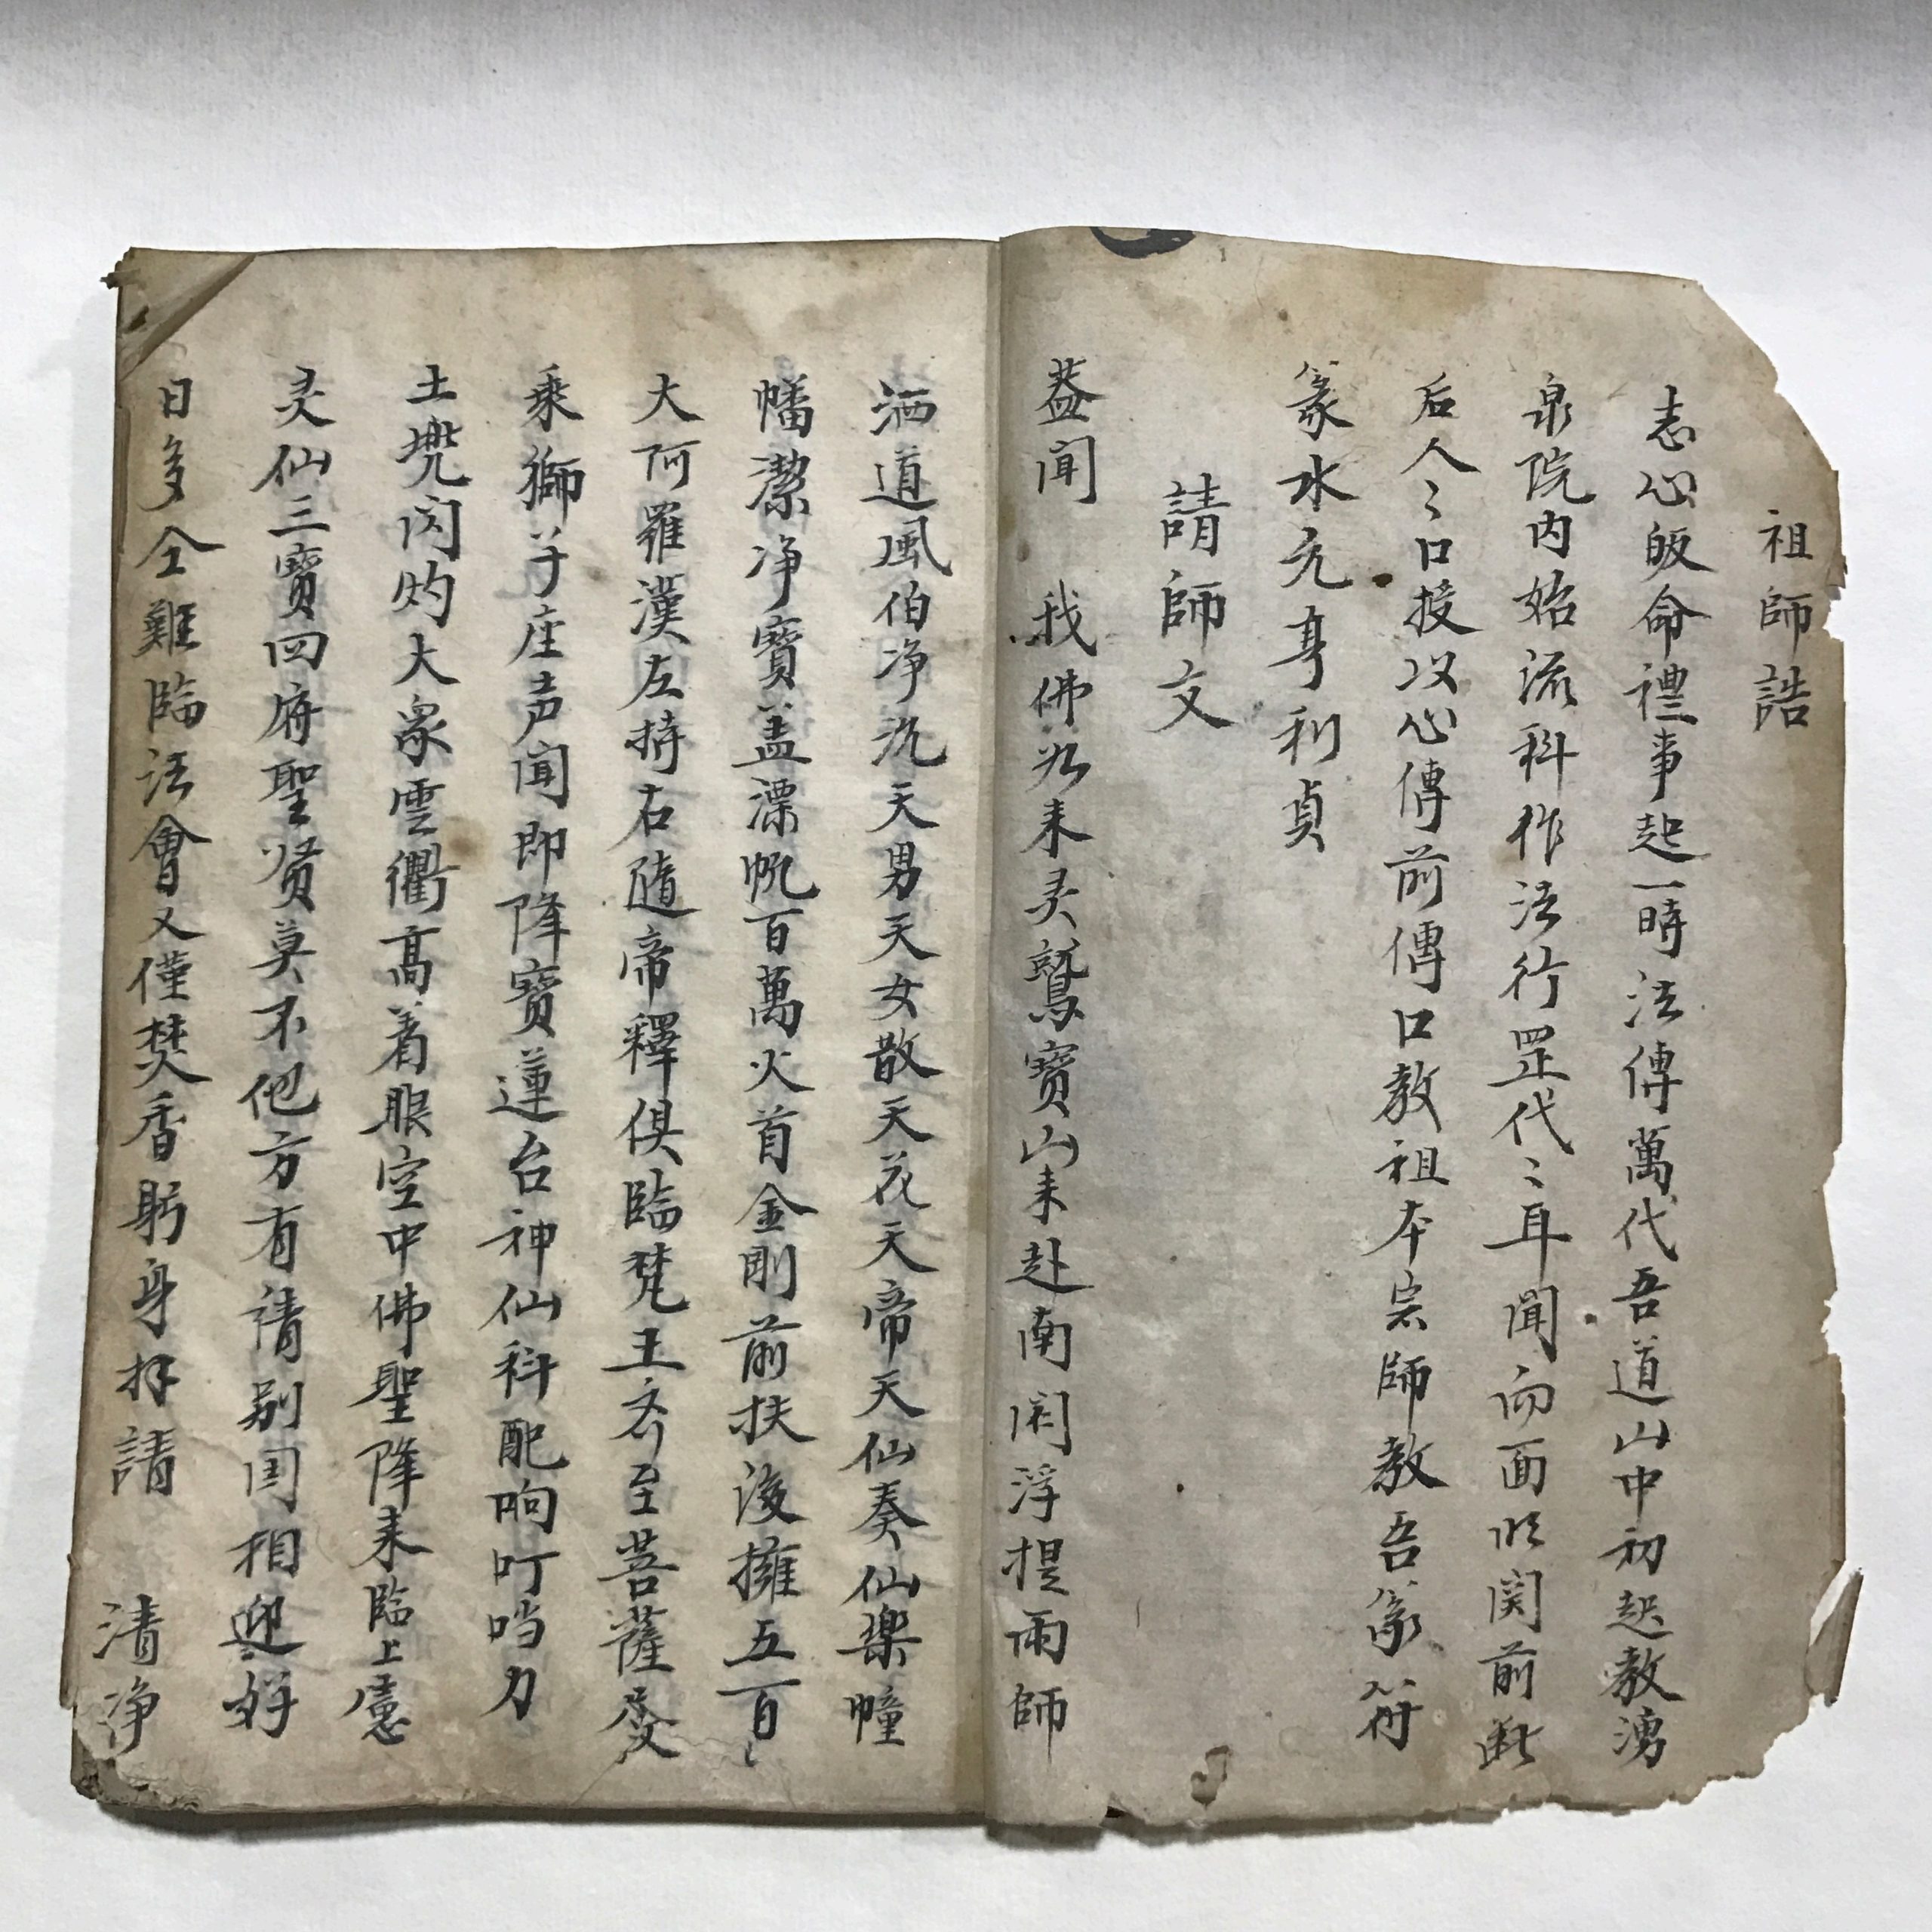 祖師誥
志心皈命禮事起一時法傳萬代吾道山中初起教湧
泉院内始流科作法行罡代〻耳聞向面以関前此
后人〻口授以心傳前傳口教祖本宗師教吾篆符
篆水元亨利貞
請師文
蓋聞 我佛如来灵鷲寶山来赴南閻浮提雨師
洒道風伯净沉天男天女散天花天帝天仙奏仙樂幢
幡潔净寶盖漂帆百萬火首金剛前扶後擁五百
大阿羅漢左持右隨帝釋俱臨梵王齐至菩薩
乘獅子座声聞即降寶蓮台神仙科配响叮噹力
土閃灼大象雲衢髙着眼空中佛聖降来臨上憲
灵仙三寶四府聖贤莫不他方有請别相迎好
日多仝難臨法會又僅焚香躬身拜請 清净